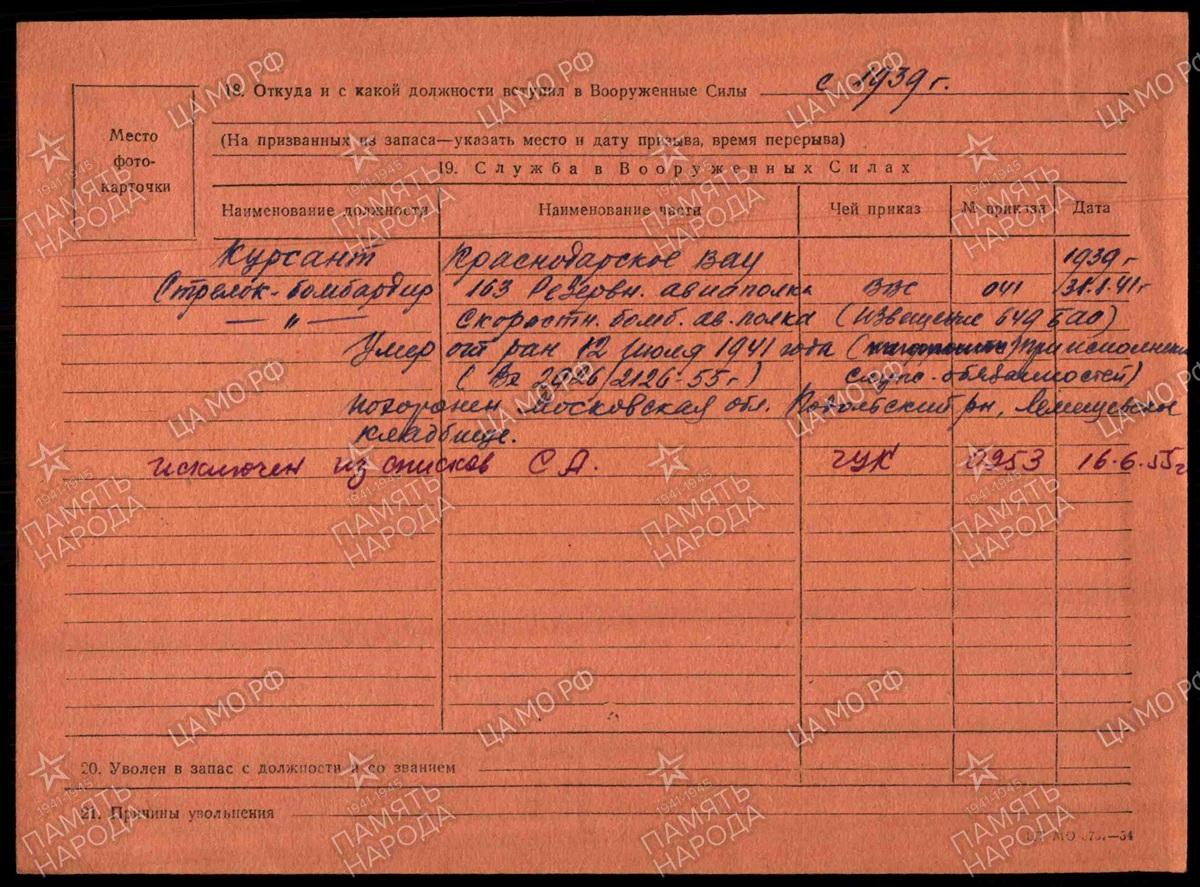 18. Откуда и с какой должности вступил в Вооруженные Силы с 1939 г.
Место
фото-
карточки
(На призванных из запаса—указать место и дату призыва, время перерыва)
19. Служба в Вооруженных Силах
Наименование должности Наименование части Чей приказ № приказа Дата
Курсант Краснодарское ВАУ 1939 г
Стрелок-бомбардир 163 Резервн. авиаполка ВВС 041 31.1.41 г
— " — скоростн. бомб. ав. полка (извещение 649 БАО)
Умер от ран 12 июля 1941 года при исполнении
( Вх 2926/2126-55 г ) служ. обязанностей)
похоронен Московская обл. рн,
кладбище.
исключен из списков С А. ГУК 0953 16.6.55 г
20. Уволен в запас с должности и со званием
21. Причины увольнения
ЦА МО РФ
1941-1945
ПАМЯТЬ
НАРОДА